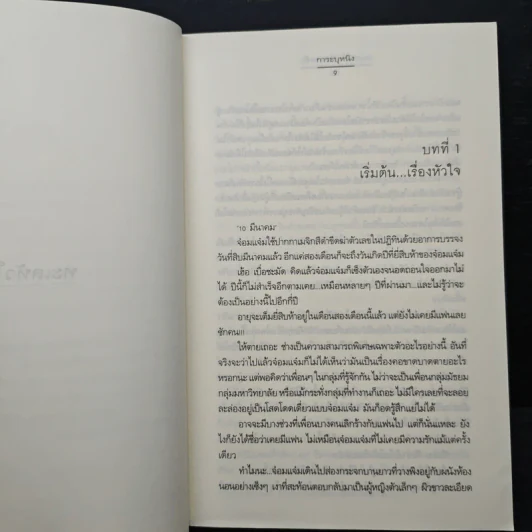 การะบุหนิง
๑
บทที่ 1
เริ่มต้น...เรื่องหัวใจ
'๑๐ มีนาคม'
จ๋อมแจ๋มใช้ปากกาเมจิกสีดำขีดฆ่าตัวเลขในปฏิทินด้วยอาการบรรจง
วันที่สิบมีนาคมแล้ว อีกแค่สองเดือนก็จะถึงวันเกิดปีที่ยี่สิบห้าของจ๋อมแจ๋ม
เฮ้อ เบื่อชะมัด คิดแล้วจ๋อมแจ๋มก็เซ็งตัวเองจนอดถอนใจออกมาไม่
ได้ ปีนี้ก็ไม่สำเร็จอีกตามเคย...เหมือนหลายๆ ปีที่ผ่านมา...และไม่รู้ว่าจะ
ต้องเป็นอย่างนี้ไปอีกกี่ปี
อายุจะเต็มยี่สิบห้าอยู่ในเดือนสองเดือนนี้แล้ว แต่ยังไม่เคยมีแฟนเลย
ซักคน!!!
ให้ตายเถอะ ช่างเป็นความสามารถพิเศษเฉพาะตัวอะไรอย่างนี้ อันที่
จริงจะว่าไปแล้วจ๋อมแจ๋มก็ไม่ได้เห็นว่ามันเป็นเรื่องคอขาดบาดตายอะไร
หรอกนะ แต่พอคิดว่าเพื่อนๆ ในกลุ่มที่รู้จักกัน ไม่ว่าจะเป็นเพื่อนกลุ่มมัธยม
กลุ่มมหาวิทยาลัย หรือแม้กระทั่งกลุ่มที่ทำงานก็เถอะ ไม่มีใครเลยที่จะลอย
ละล่องอยู่เป็นโสดโดดเดี่ยวแบบจ๋อมแจ๋ม มันก็อดรู้สึกแย่ไม่ได้
อาจจะมีบางช่วงที่เพื่อนบางคนเลิกร้างกับแฟนไป แต่ก็นั่นแหละ ยัง
ไงก็ยังได้ชื่อว่าเคยมีแฟน ไม่เหมือนจ๋อมแจ๋มที่ไม่เคยมีความรักแม้แต่ครั้ง
เดียว
ทำไมนะ...จ๋อมแจ๋มเดินไปส่องกระจกบานยาวที่วางพิงอยู่กับผนังห้อง
นอนอย่างเซ็งๆ เงาที่สะท้อนตอบกลับมาเป็นผู้หญิงตัวเล็กๆ ผิวขาวละเอียด